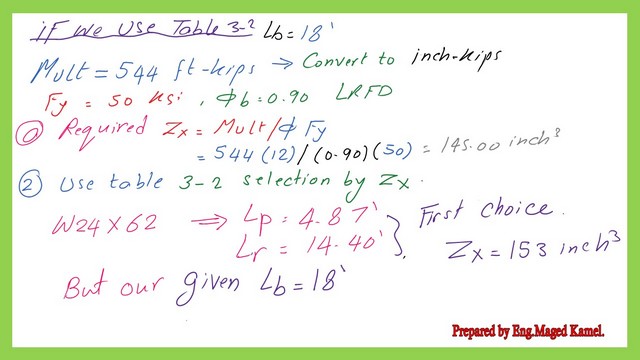 if We Use Table 3-2 Lb=18'
Mult = 544 ft-kips → Convert to inch-kips
Fy = 50 ksi, Φb=0.90 LRFD
① Required Zx = Mult/Φ Fy
= 544(12)/(0.90)(50) = 145.00 inch³
② Use table 3-2 selection by Zx.
W24X62 ⇒ Lp = 4.87' } First choice.
Lr = 14.40' Zx = 153 inch³
But our given Lb=18'
Prepared by Eng.Maged Kamel.